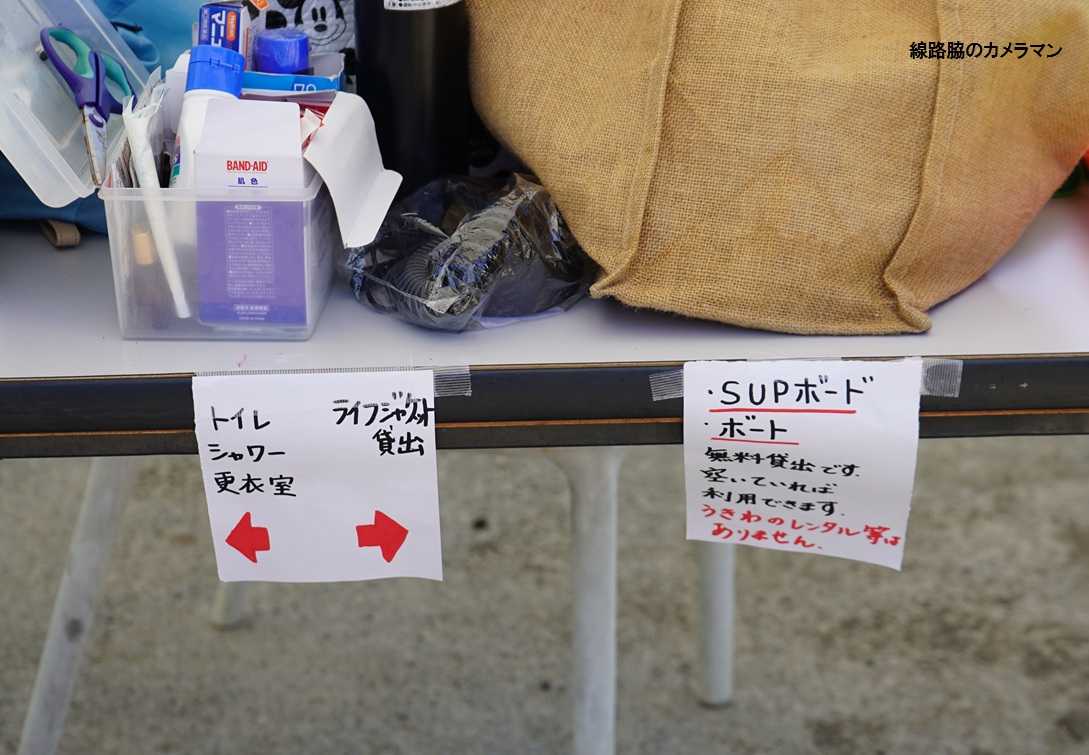 線路脇のカメラマン
BAND-AID
肌色
トイレ
シャワー
更衣室
ライフジャケット
貸出
・SUPボード
・ボート
無料貸出です.
空いていれば
利用できます.
うきわのレンタル等は
ありません.